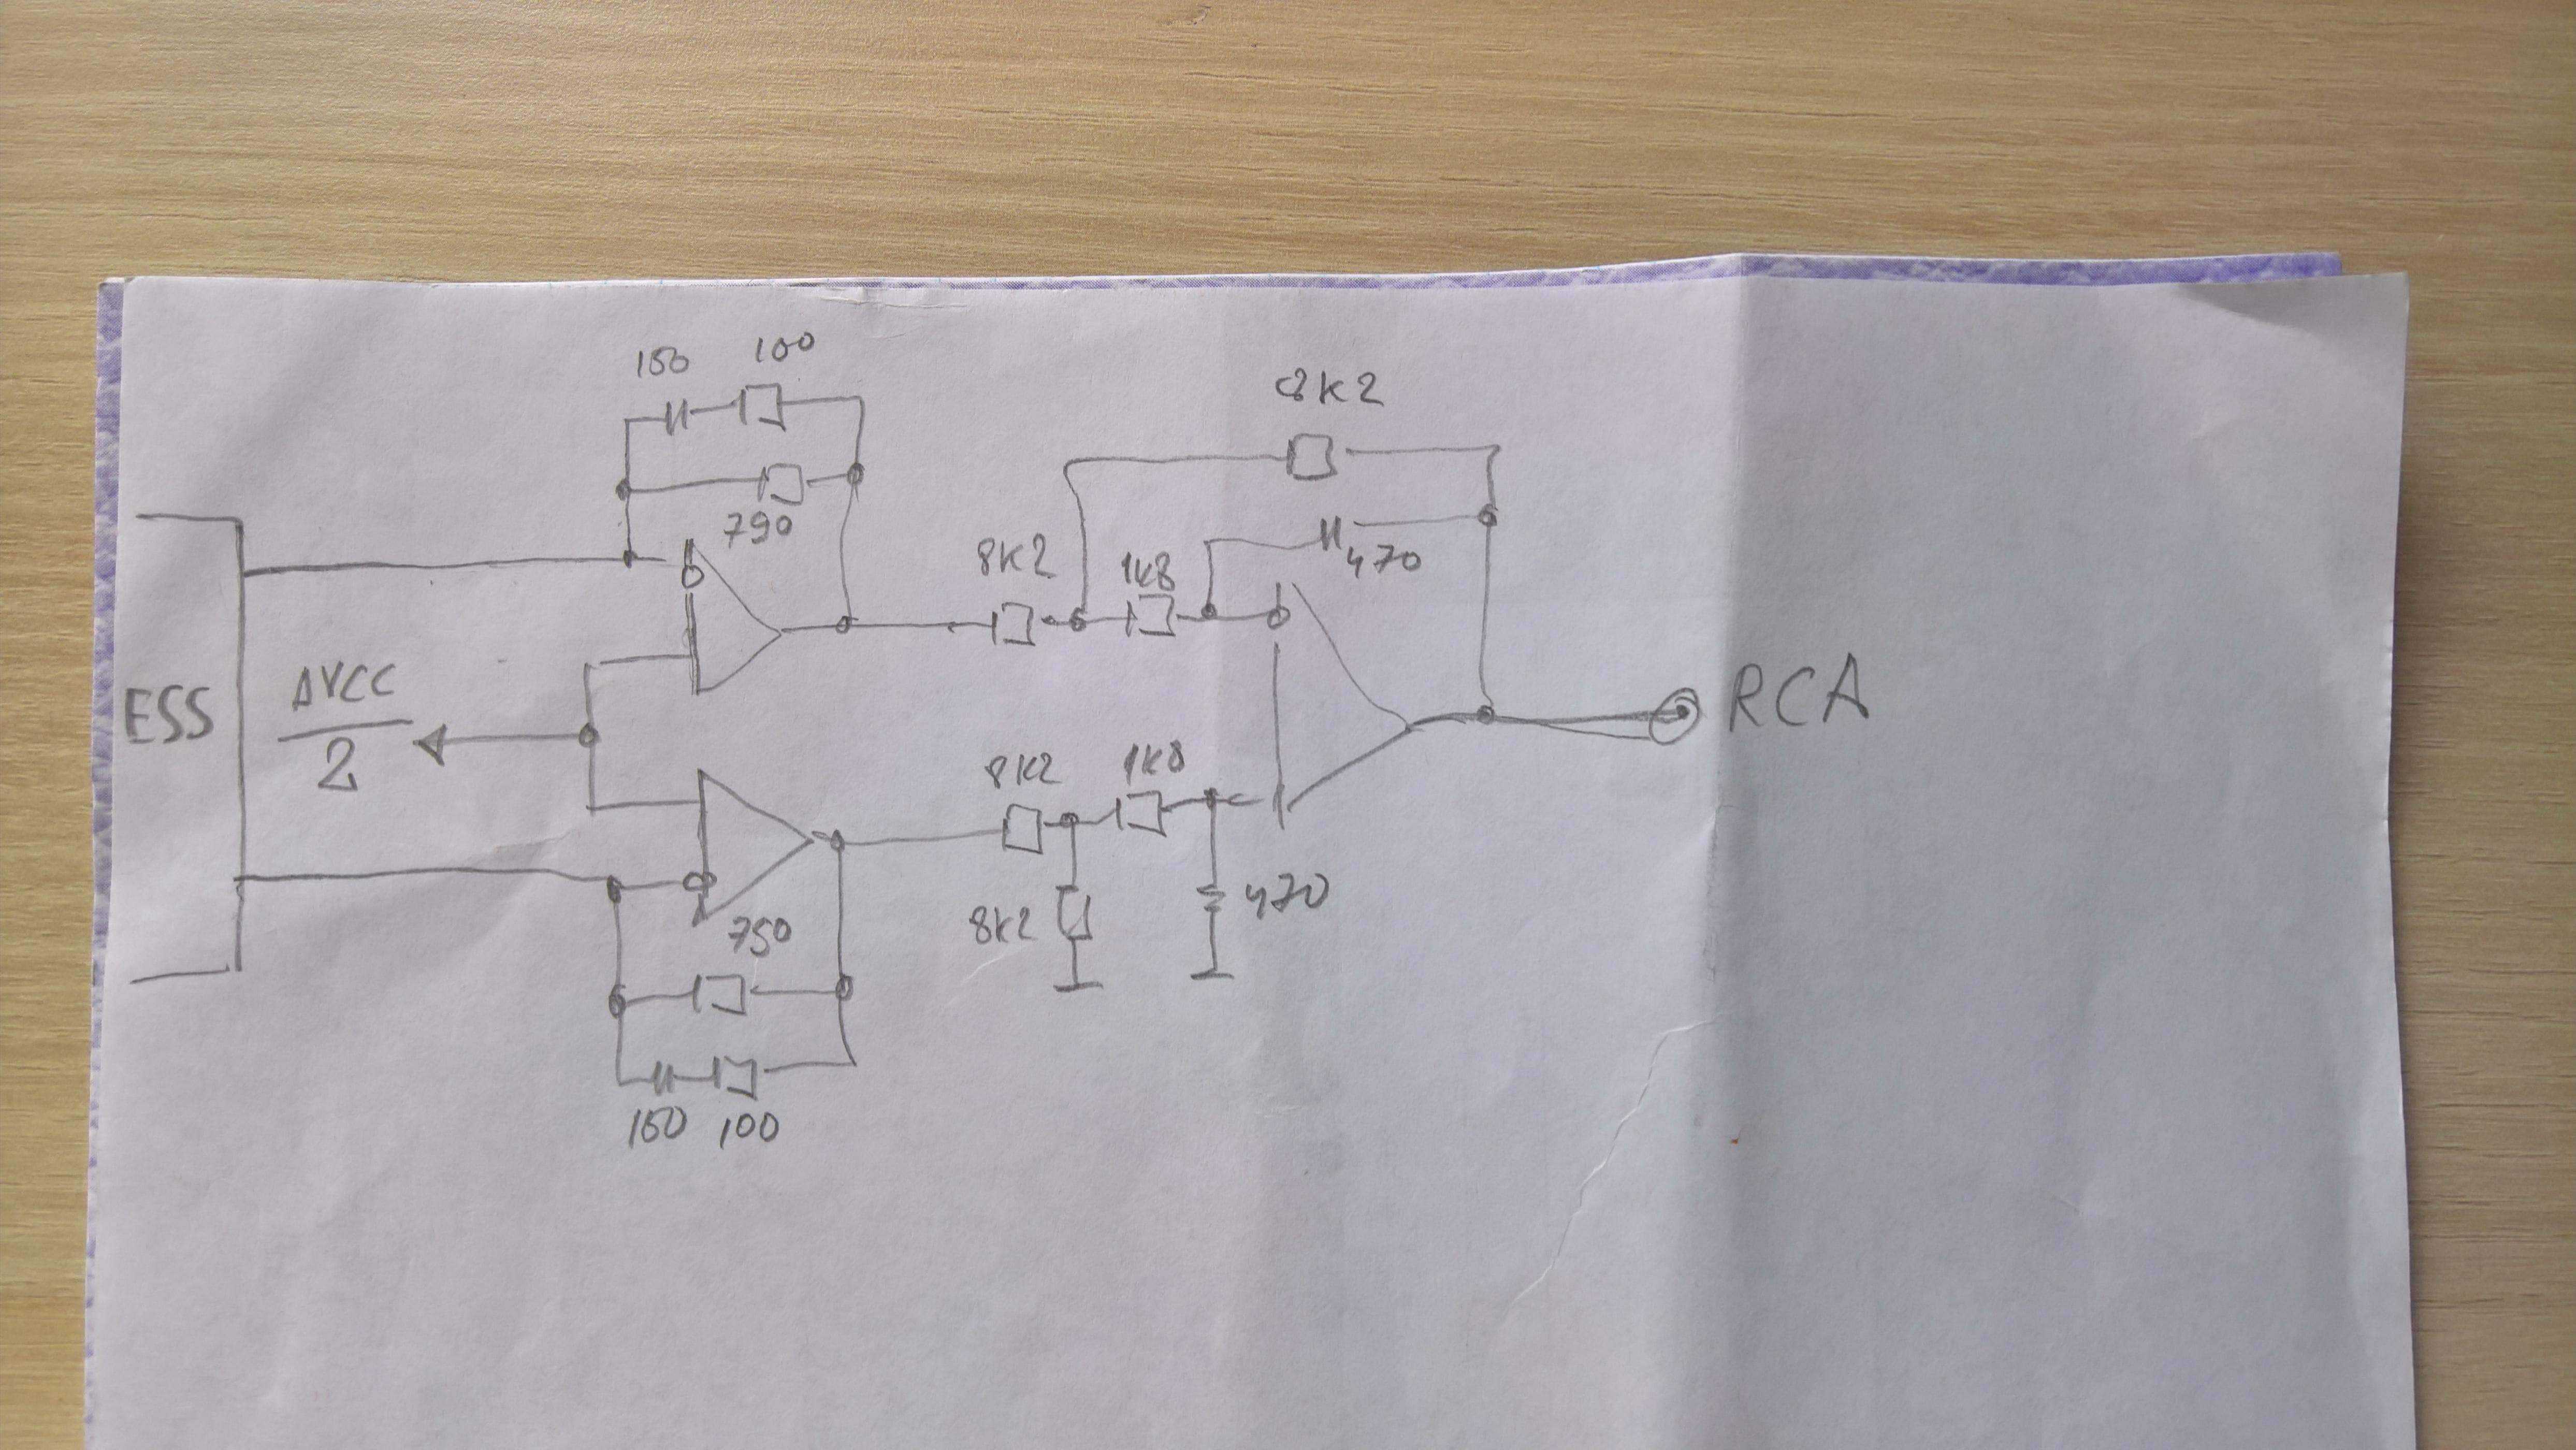 150 100
8K2
790
470
8K2 1K8
ESS
AVCC
2
RCA
8K2 1K8
750
8K2
470
150 100